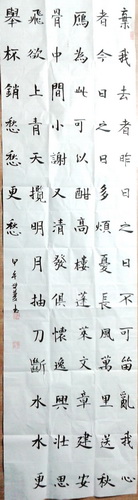 棄我去者昨日之日不可留亂我心
者今日之日多煩憂長風萬里送秋
鴈此可以酣高樓蓬萊文章建安
骨中間小謝又清發俱懷逸興壯思
飛欲上青天攬明月抽刀斷水水更
舉杯銷愁愁更愁